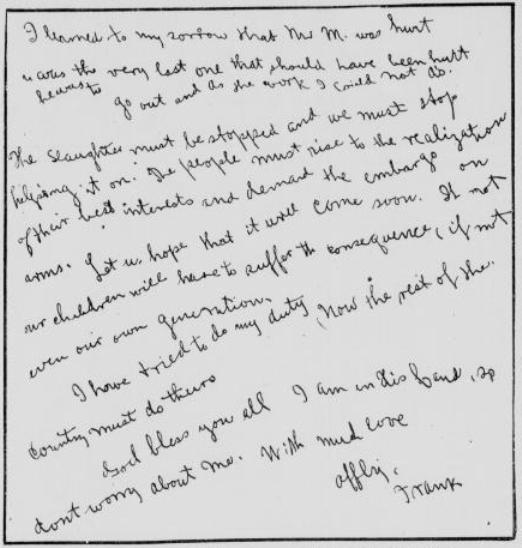 I learned to my sorrow that Mr M. was hurt
was the very last one that should have been hurt
he was to go out and do the work I could not do.
The slaughter must be stopped and we must stop
helping it on. The people must rise to the realization
of their best interests and demand the embargo on
arms. Let us hope that it will come soon. If not
our children will have to suffer the consequence, if not
even our own generation.
I have tried to do my duty, now the rest of the
country must do theirs
God bless you all I am in His hand, so
dont worry about me. With much love
affly,
Frank